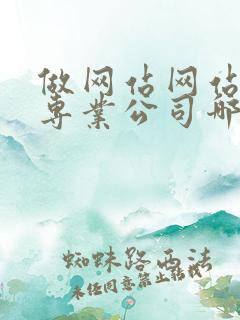 做网站网站
专业公司哪
蜘蛛路西法
未经同意禁止转载